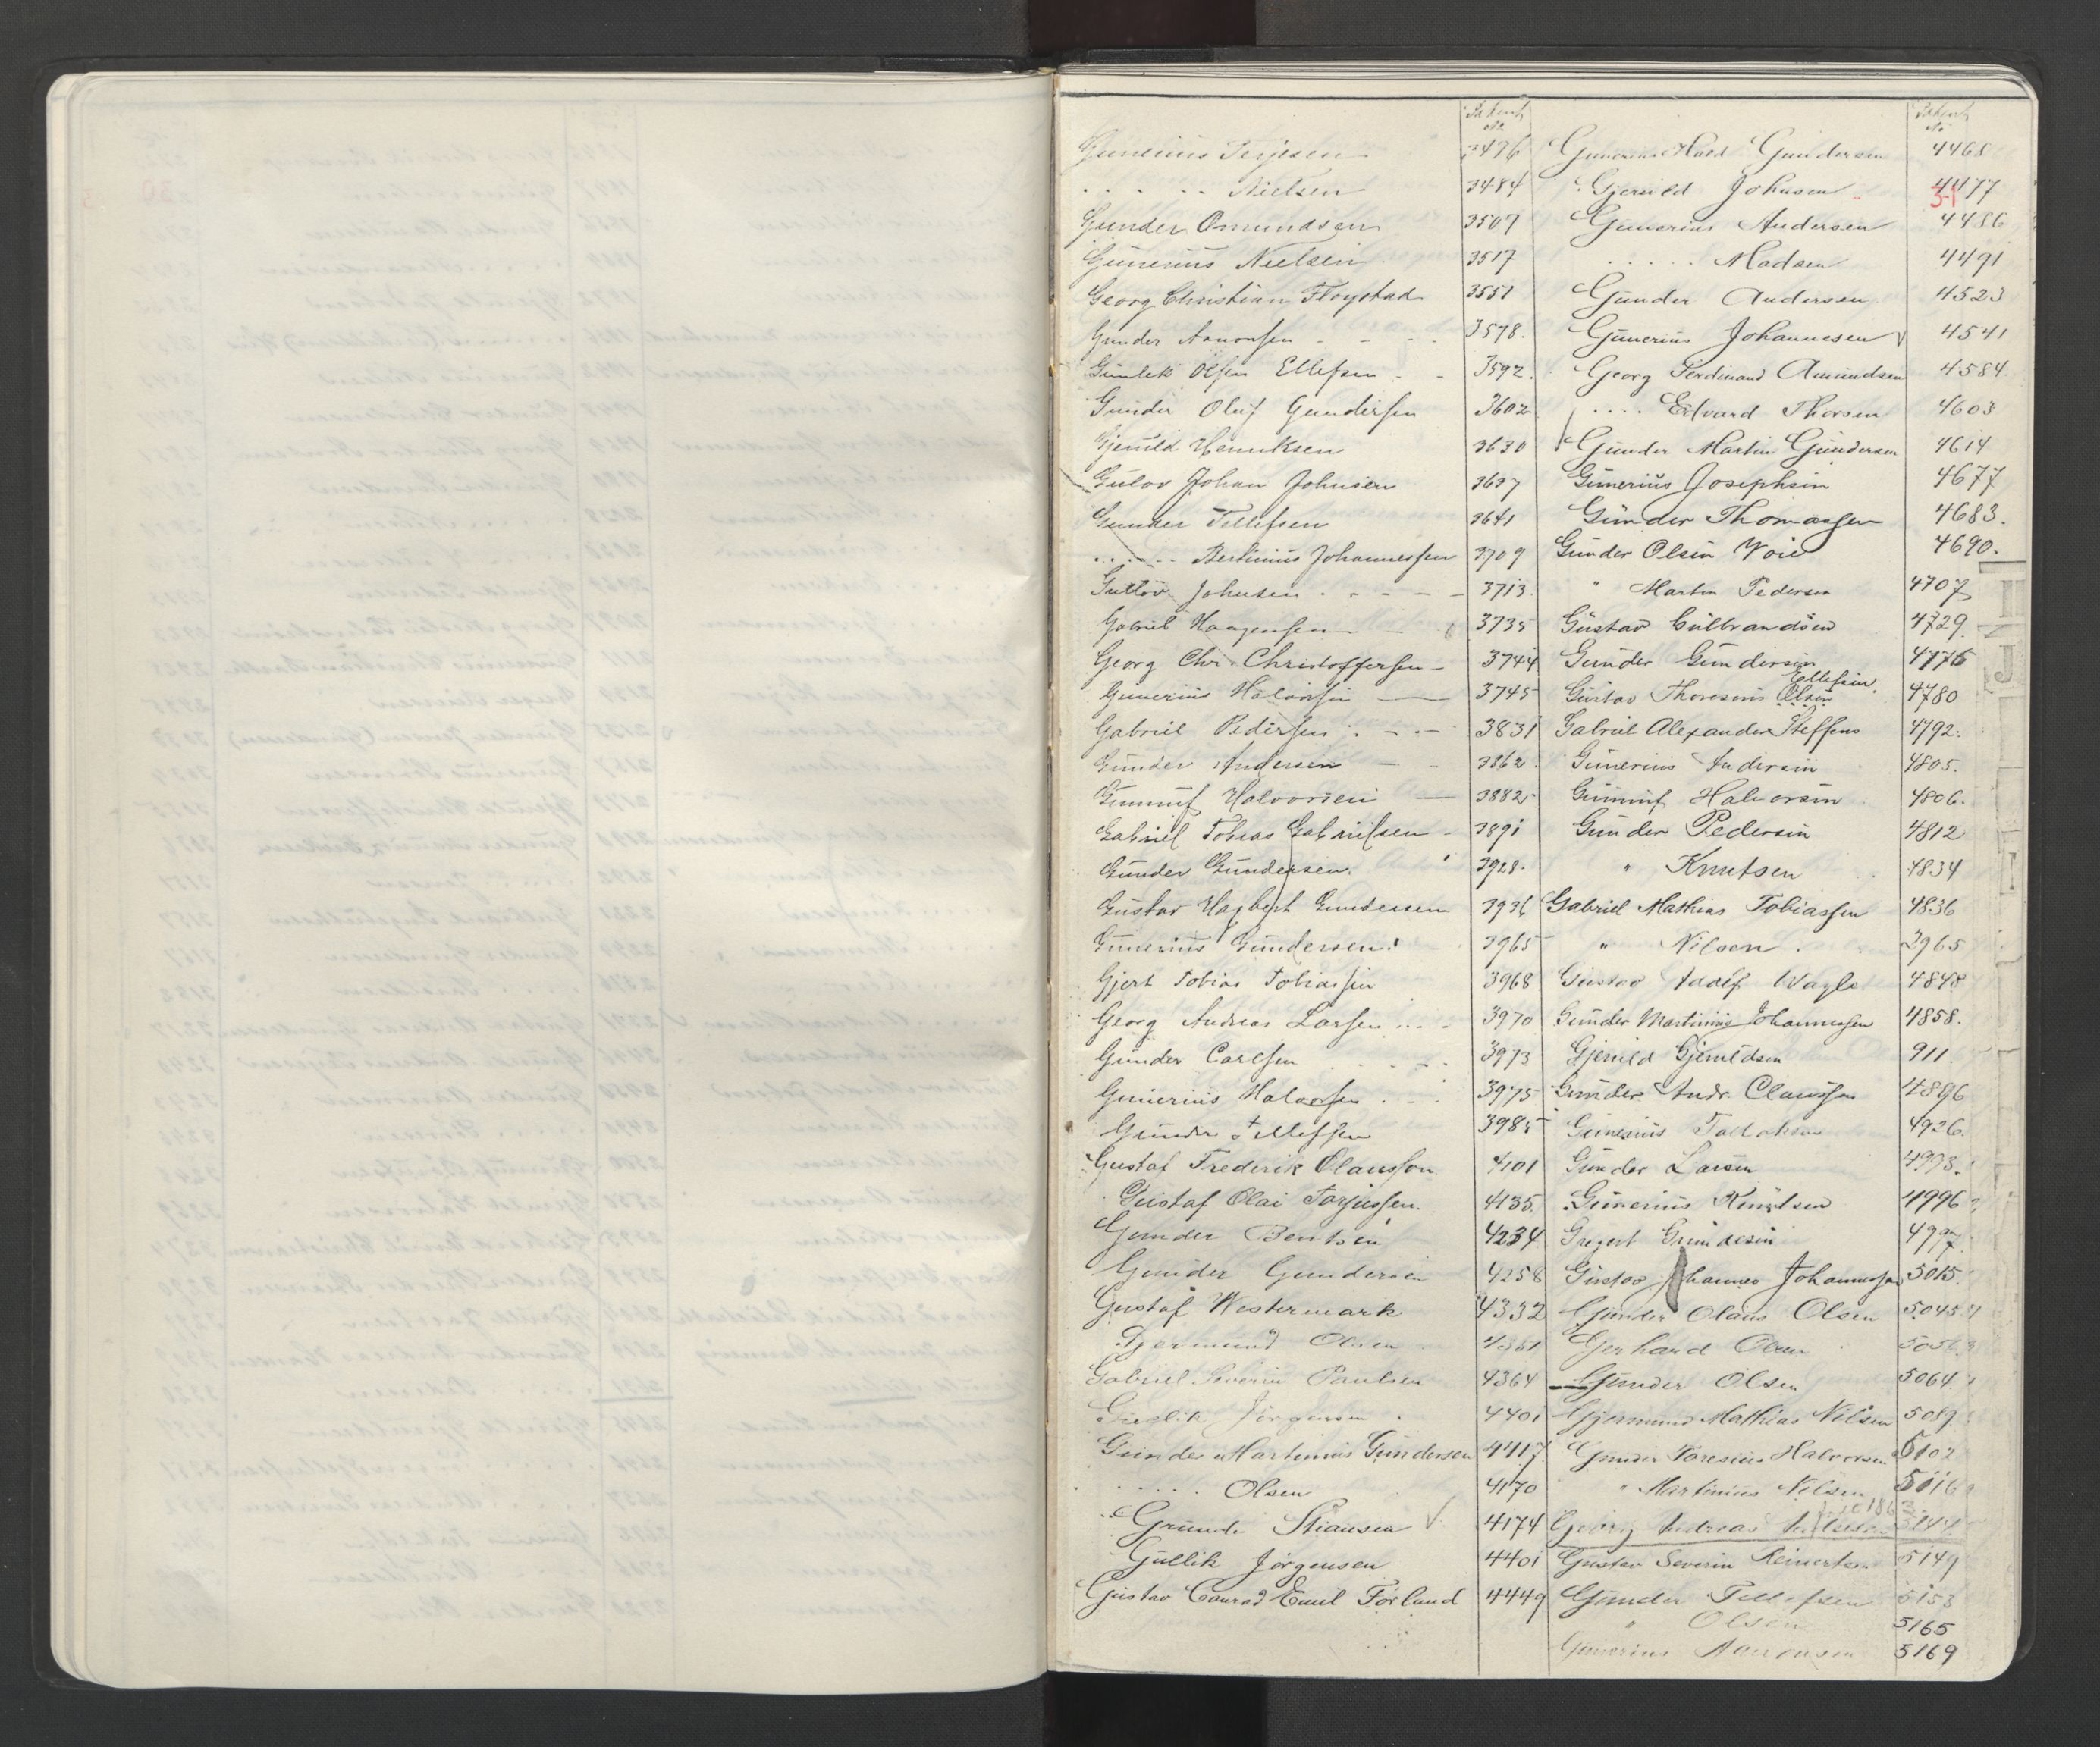 Patent No
Gunerius Terjesen 3476
. . . . . Nielsen 3484
Gunder Omundsen 3507
Gunerius Nielsen 3517
Georg Christian Fløystad 3551
Gunder Aanonsen - - - 3578.
Gunlek Olsen Ellefsen - - 3592.
Gunder Oluf Gundersen 3602
Gjeruld Henriksen 3630
Gulov Johan Johnsen 3637
Gunder Tellefsen 3641
. . . . . Bertinius Johannessen 3709
Guttov Johnsen . - - - - 3713.
Gabriel Haagensen - - 3735
Georg Chr. Christoffersen - 3744
Gunerius Halvorsen — 3745
Gabriel Pedersen . - . - 3831
Gunder Andersen - - 3862.
Gunnuf Halvorsen — 3882
Gabriel Tobias Gabrielsen - 3891
Gunder Gundersen. 3928.
Gustav Hagbart Gundersen 3936
Gunerius Gundersen. 3965
Gjert Tobias Tobiassen 3968
Georg Andreas Larsen . . . . 3970
Gunder Carlsen 3973
Gunerius Halvorsen . . . 3975
Gunder Tellefsen 3985
Gustaf Frederik Olausson 4101
Gustaf Olai Torjussen. 4135.
Gunder Bentsen 4234
Gunder Gundersen 4258
Gustaf Westermark 4332
Gjermund Olsen 4361
Gabriel Severin Paulsen 4364
Gullik Jørgensen . 4401
Gunder Martinius Gundersen 4417.
. . . . . . Olsen 4170
Grunde Stiansen √ 4174
Gullik Jørgensen 4401
Gustav Conrad Emil Førland 4449
Patent No
Gunerius Hald Gundersen 4468
Gjeruld Johnsen 4477
31
Gunerius Andersen 4486
. . . . . Madsen 4491
Gunder Andersen 4523
Gunerius Johannesen 4541
Georg Ferdinand Amundsen 4584
. . . . Edvard Thorsen 4603
Gunder Martin Gundersen 4614
Gunerius Josephsen 4677
Gunder Thomassen 4683.
Gunder Olsen Voie 4690.
" Martin Pedersen 4707
Gustav Gulbrandsen 4729.
Gunder Gundersen 4776
Ellefsen.
Gustav Thoresius Olsen 4780
Gabriel Alexander Steffens 4792.
Gunerius Andersen 4805.
Gunnuf Halvorsen 4806.
Gunder Pedersen 4812
" Knutsen 4834
Gabriel Mathias Tobiassen 4836
" Nilsen . 3965
Gustav Adolf Wagle 4848
Gunder Martinius Johannesen 4858.
Gjeruld Gjeruldsen 911.
Gunder Andr. Claussen 4896
Gunerius 4926.
Gunder Larsen 4993.
Gunerius Knutsen 4996
Gregert Grundesen 4997.
Gustav Johannes Johannessen 5015.
Gunder Olaus Olsen 5045
Gerhard Olsen 5056
Gunder Olsen 5064
Gjermund Mathias Nilsen 5089
Gunder Toresius Halvorsen 5102
" Martinius Nilsen 5116
1863
Georg Andreas 5144
Gustav Severin Reinertsen 5149
Gunder Tellefsen 5153
" Olsen 5165
Gunerius Aanonsen 5169